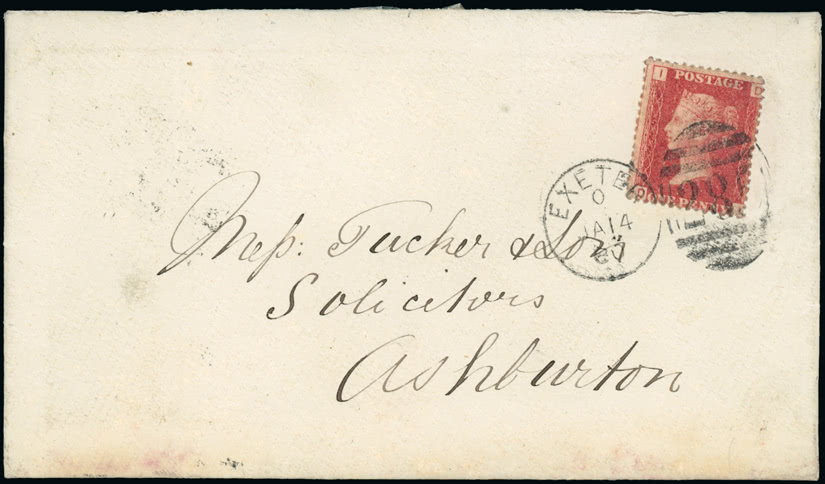 I POSTAGE D
EXETER
O
JA 14
Mess: Tucker & Son
Solicitors
Ashburton